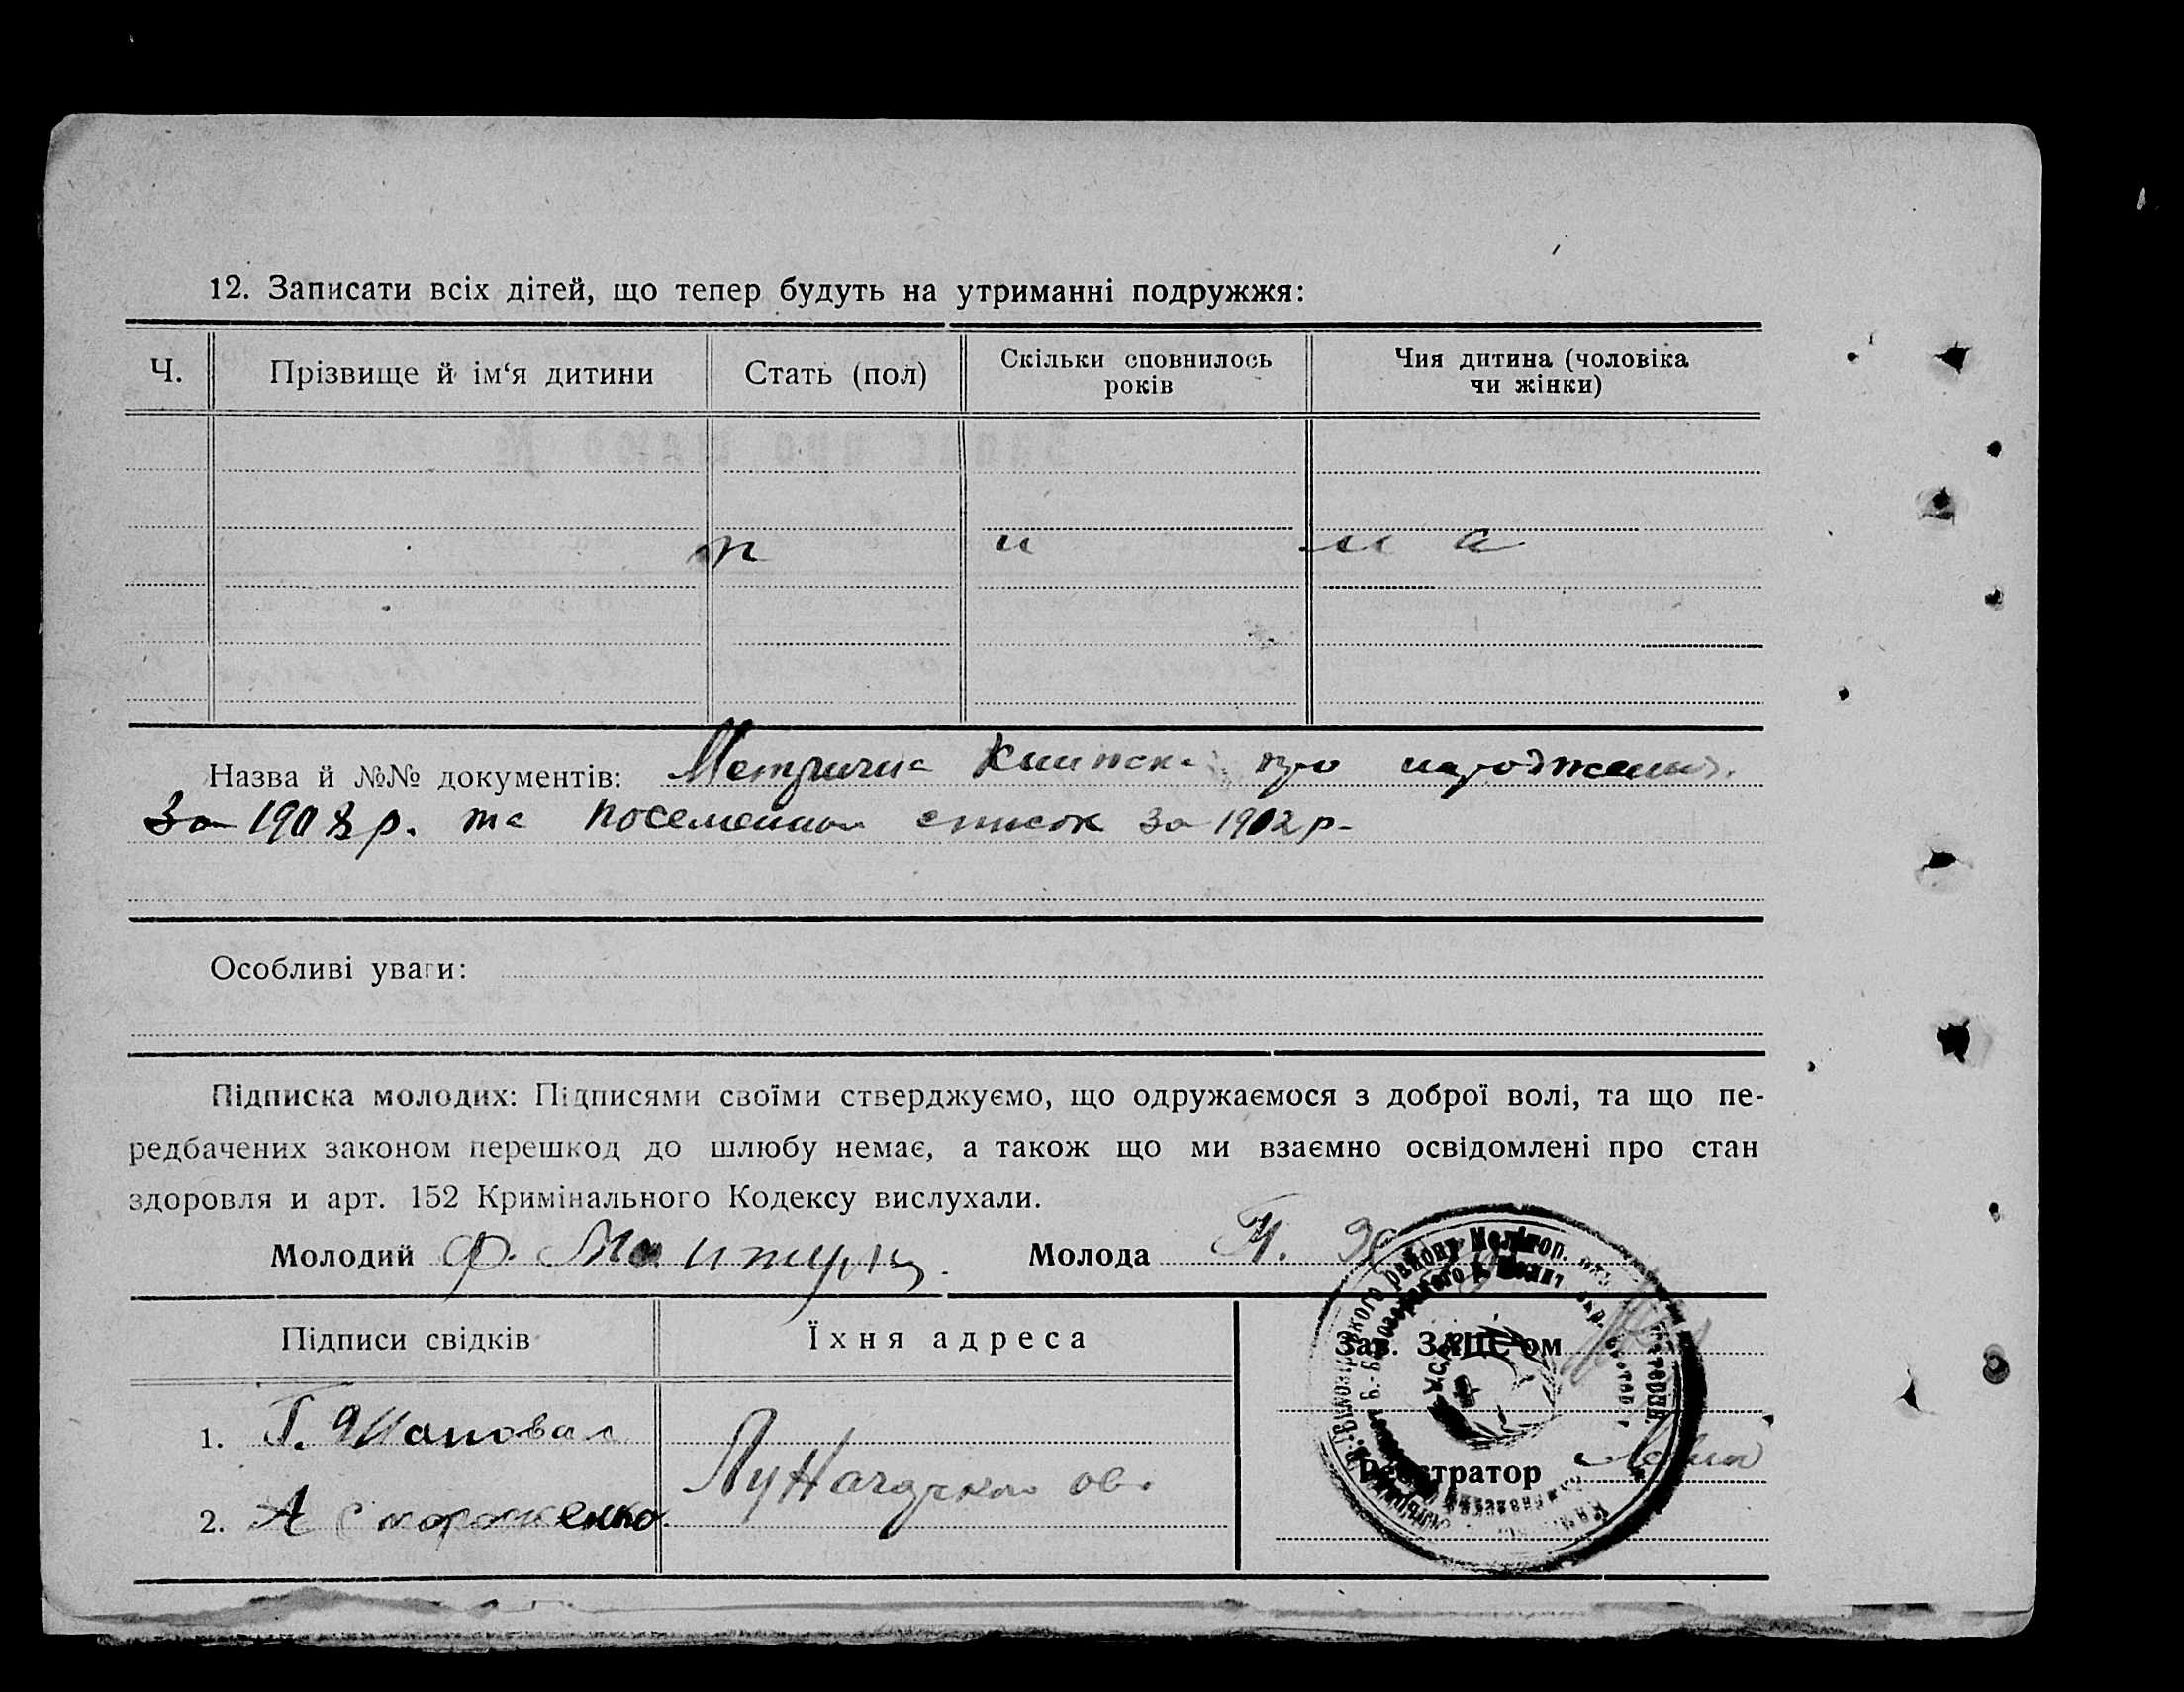 12. Записати всіх дітей, що тепер будуть на утриманні подружжя:
Ч. Прізвище й ім‘я дитини Стать (пол) Скільки сповнилось років Чия дитина (чоловіка чи жінки)
Назва й №№ документів: Метрична про народження
За 1908 р. та список за 1902 р.
Особливі уваги:
Підписка молодих: Підписями своїми стверджуємо, що одружаємося з доброї волі, та що пе-
редбачених законом перешкод до шлюбу немає, а також що ми взаємно освідомлені про стан
здоровля и арт. 152 Кримінального Кодексу вислухали.
Молодий Ф. Молода
Підписи свідків Їхня адреса Зав. ЗАГС‘ом
1. Г. Шаповал
2. А
Реєстратор